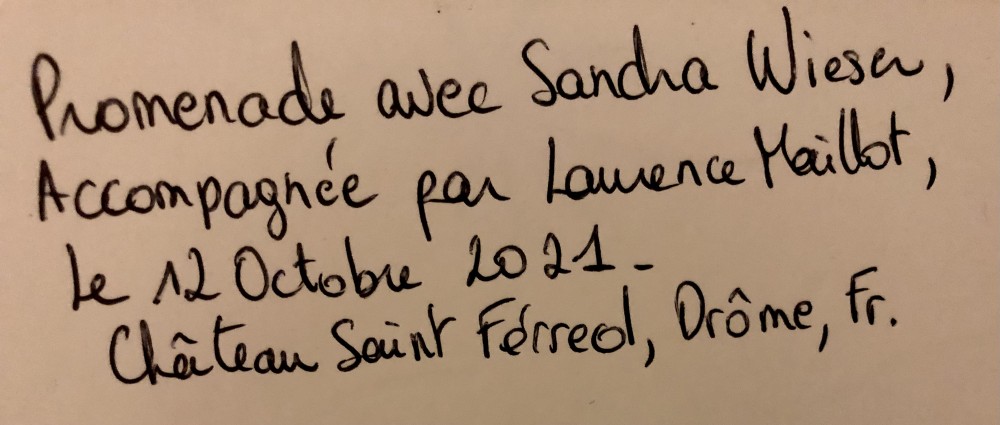 Promenade avec Sandra Wieser,
Accompagnée par Laurence Maillot,
Le 12 Octobre 2021-
Château Saint Férreol, Drôme, Fr.